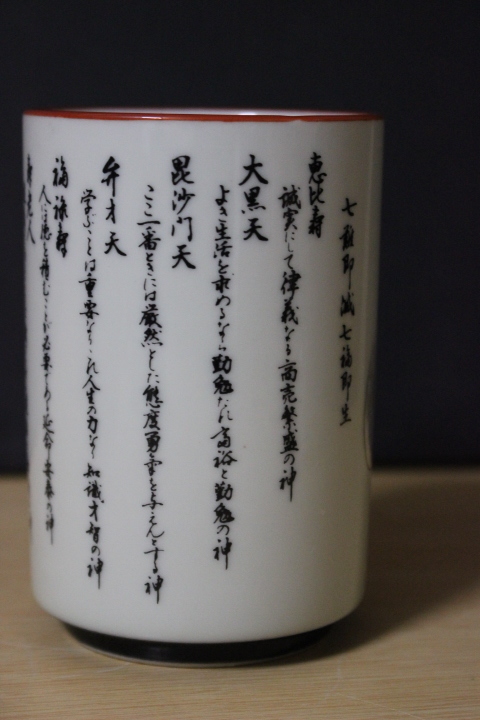 七難即滅七福即生
恵比寿
誠実にして律義なる商売繁盛の神
大黒天
よき生活を求めるなら勤勉たれ富裕と勤勉の神
毘沙門天
ここ一番ときには厳然とした態度勇気を与えんとする神
弁才天
学ぶことは重要なりこれ人生の力なり知識才智の神
福禄寿
人には徳を積むことが必要である延命安泰の神
寿老人